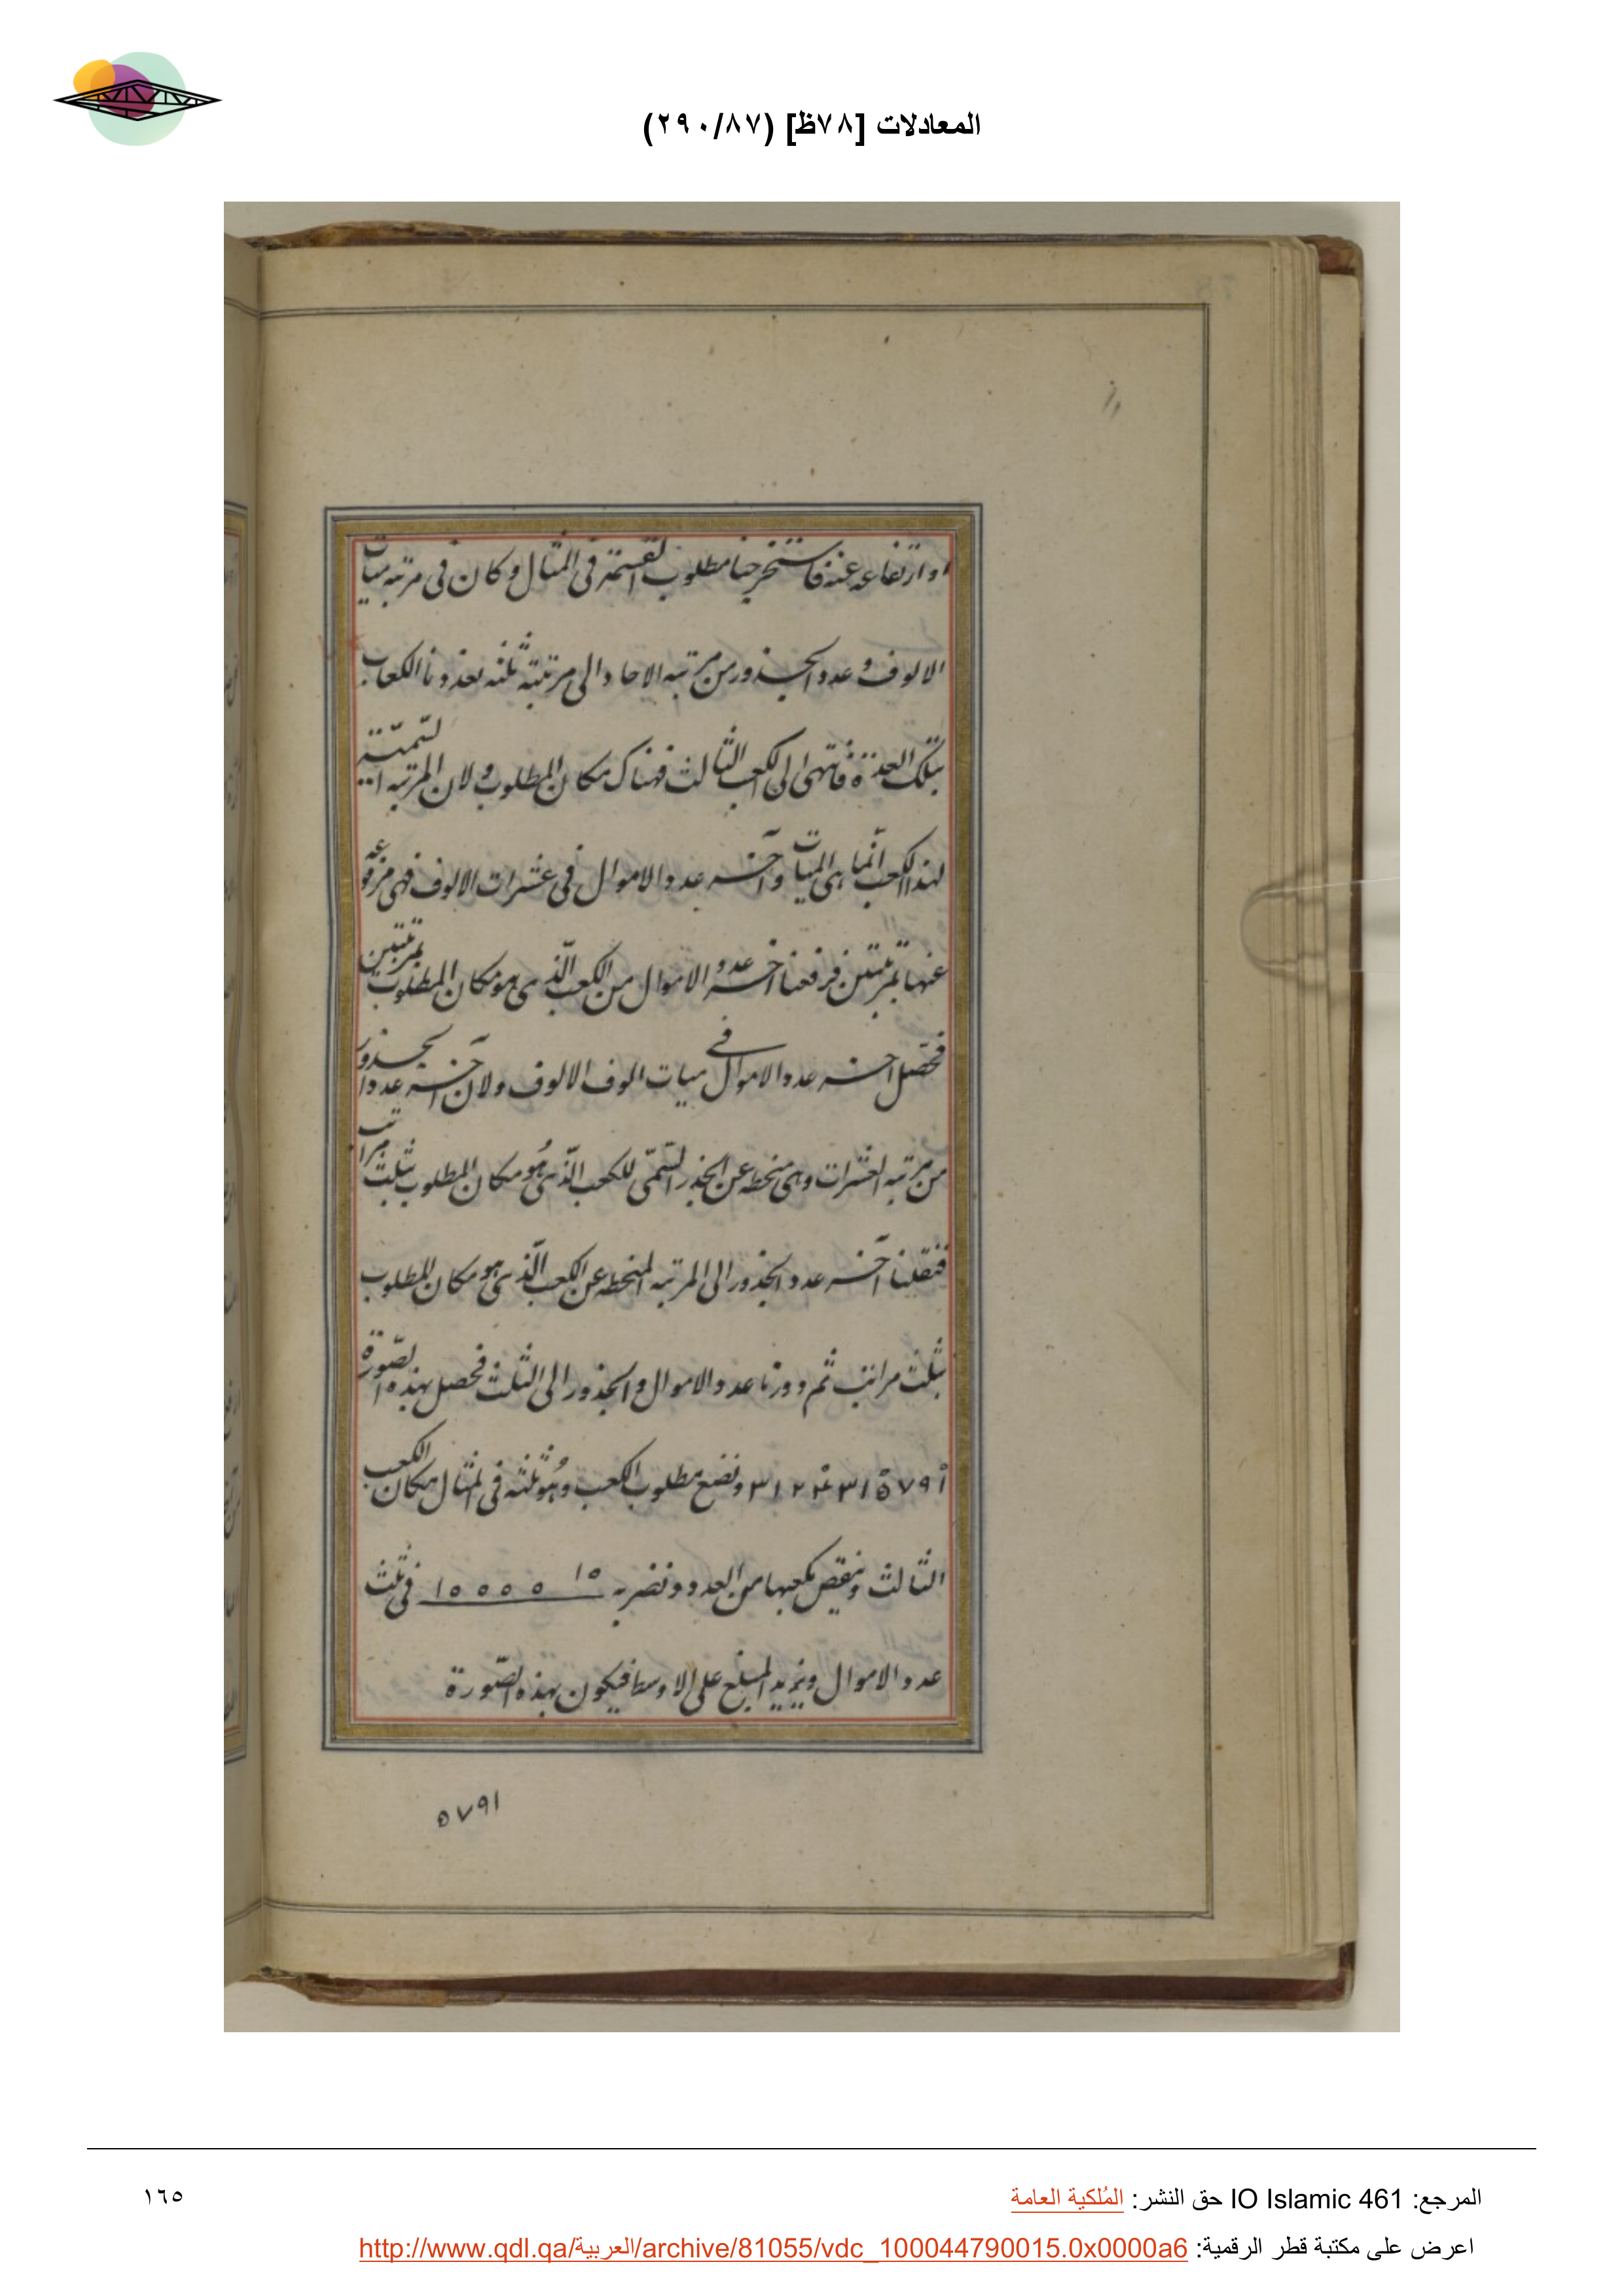 المعادلات [٧٨ظ] (٢٩٠/٨٧)
او ارتفاعه عنه فاستخرجنا مطلوب القسمة فى المثال وكان فى مرتبه ميات
الالوف وعدد الجذور من مرتبه الاحاد الى مرتبته ثلثه فعددنا الكعاب
بتلك العدة فانتهى الى الكعب الثالث فهناك مكان المطلوب ولان المرتبه السمية
لهذا الكعب انما هى الميات وآخر عدد الاموال فى عشرات الالوف فهى مرفوعه
عنها بمرتبتين فرفعنا آخر عدد الاموال من الكعب الذى هو مكان المطلوب بمرتبتين
فحصل آخر عدد الاموال فى ميات الوف الالوف ولان آخر عدد الجذور
من مرتبه العشرات وهى منحطه عن الجذر السمى للكعب الذى هو مكان المطلوب بثلث مراتب
فنقلنا آخر عدد الجذور الى المرتبه المنحطه عن الكعب الذى هو مكان المطلوب
بثلث مراتب ثم رددنا عدد الاموال والجذور الى الثلث فحصل بهذه الصورة
ونضع مطلوب الكعب وهو ثلثه فى المثال مكان الكعب
الثالث وننقص مكعبها من العدد ونضربه فى ثلث
عدد الاموال ونزيد المبلغ على الاوسط فيكون بهذه الصورة
٥٧٩١
المرجع: IO Islamic 461 حق النشر: المُلكية العامة
١٦٥
اعرض على مكتبة قطر الرقمية: http://www.qdl.qa/العربية/archive/81055/vdc_100044790015.0x0000a6